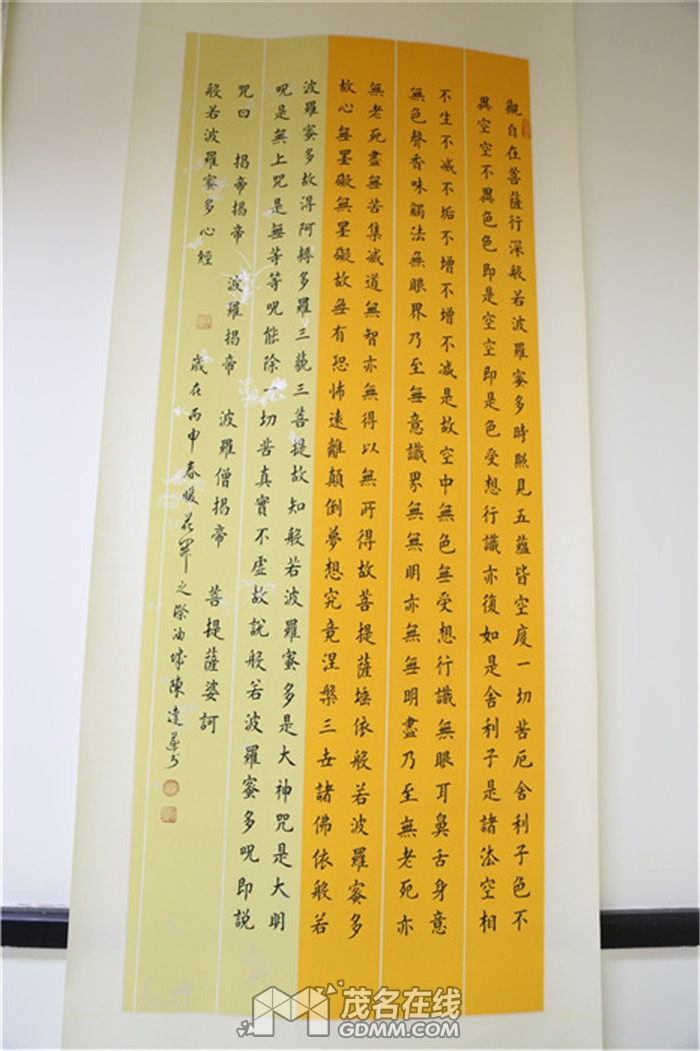 觀自在菩薩行深般若波羅蜜多時照見五蘊皆空度一切苦厄舍利子色不
異空空不異色色即是空空即是色受想行識亦復如是舍利子是諸法空相
不生不減不垢不增不增不減是故空中無色無受想行識無眼耳鼻舌身意
無色聲香味觸法無眼界乃至無意識界無無明亦無無明盡乃至無老死亦
無老死盡無苦集滅道無智亦無得以無所得故菩提薩埵依般若波羅蜜多
故心無罣礙無罣礙故無有恐怖遠離顛倒夢想究竟涅槃三世諸佛依般若
波羅蜜多故得阿耨多羅三藐三菩提故知般若波羅蜜多是大神咒是大明
呪是無上咒是無等等呪能除一切苦真實不虛故說般若波羅蜜多呪即說
咒曰 揭帝揭帝 波羅揭帝 波羅僧揭帝 菩提薩婆訶
般若波羅蜜多心經
歲在丙申春暖花開之際油城陳達書
茂名在线
GDMM.COM